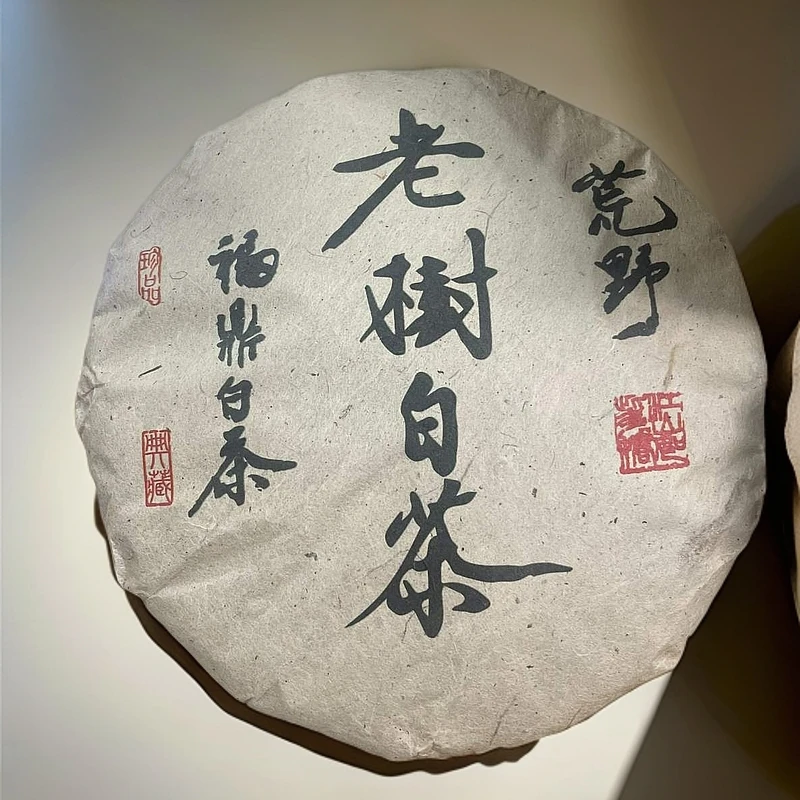 荒野
老樹白茶
福鼎白茶
珍品
典藏